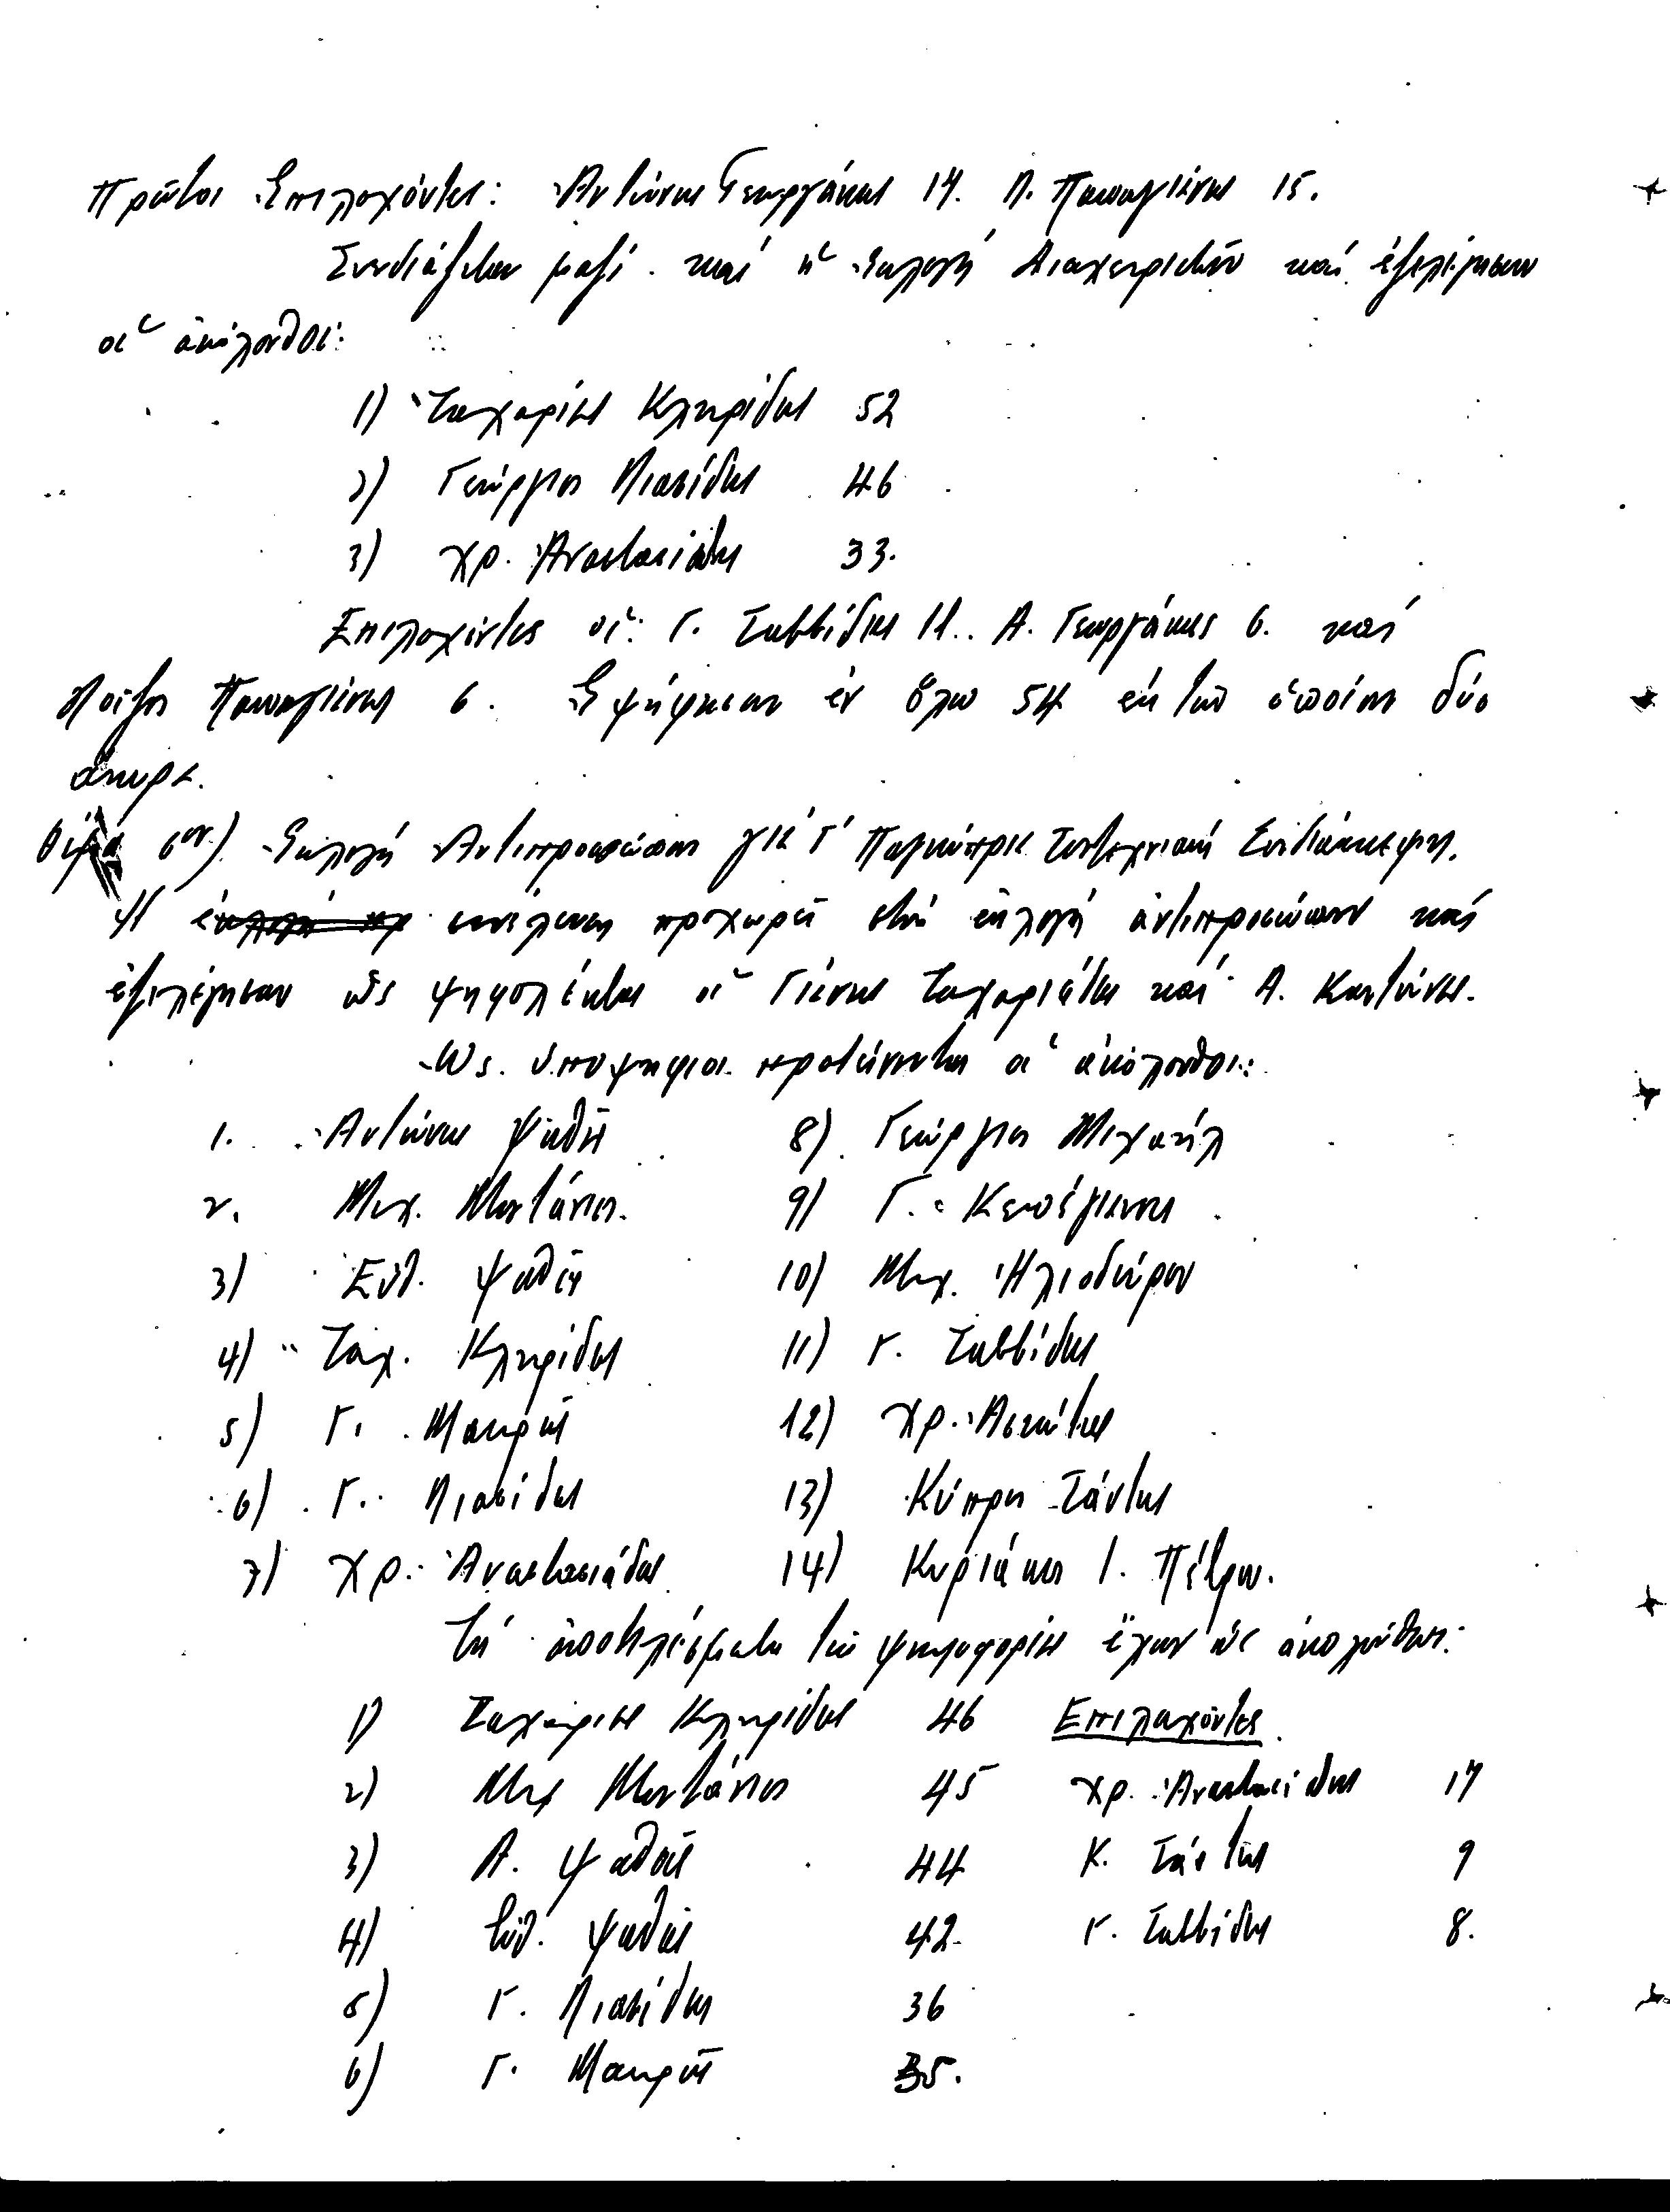 Πρῶτοι Ἐπιλαχόντες: Ἀντώνης Γεωργάκης 14. Λ. Παπαγιάννης 15.
Συνδιάζεται μαζί καί ἡ ἐκλογή Διαχειριστῶν καί ἐξελέγησαν
οἱ ἀκόλουθοι:
1) Ζαχαρίας Κληρίδης 52
2) Γεώργιος Λιασίδης 46
3) Χρ. Ἀναστασιάδης 33.
Ἐπιλαχόντες οἱ: Γ. Σαββίδης 11. Α. Γεωργάκης 6. καί
Λοΐζος Παπαγιάννης 6. Ἐψήφισαν ἐν ὅλω 54 ἐκ τῶν ὁποίων δύο
ἄκυρα.
Θέμα 6ον) Ἐκλογή Ἀντιπροσώπων γιά Παγκύπρια Συντεχνιακή Συνδιάσκεψη.
Ἡ συνέλευση προχωρεῖ στήν ἐκλογή ἀντιπροσώπων καί
ἐξελέγησαν ὡς ψηφολέκται οἱ Γιάννης Ζαχαριάδης καί Α. Καντούνας.
Ὡς ὑποψήφιοι προτείνονται οἱ ἀκόλουθοι:
1. Ἀντώνης Ψαθᾶς 8) Γεώργιος Μιχαήλ
2. Μιχ. Μοντάνιος 9) Γ. Κεπέγιαννης
3) Εὐθ. Ψαθᾶς 10) Μιχ. Ἡλιοδώρου
4) Ζαχ. Κληρίδης 11) Γ. Σαββίδης
5) Γ. Μακρῆς 12) Χρ. Ἀσκώτης
6) Γ. Λιασίδης 13) Κύπρος Τάντης
7) Χρ. Ἀναστασιάδης 14) Κυριάκος Ι. Πέτρου.
Τά ἀποτελέσματα τῆς ψηφοφορίας ἔχουν ὡς ἀκολούθως:
1) Ζαχαρίας Κληρίδης 46 Ἐπιλαχόντες
2) Μιχ Μοντάνιος 45 Χρ. Ἀναστασιάδης 17
3) Α. Ψαθᾶς 44 Κ. Τάντης 9
4) Εὐθ. Ψαθᾶς 42 Γ. Σαββίδης 8.
5) Γ. Λιασίδης 36
6) Γ. Μακρῆς 35.